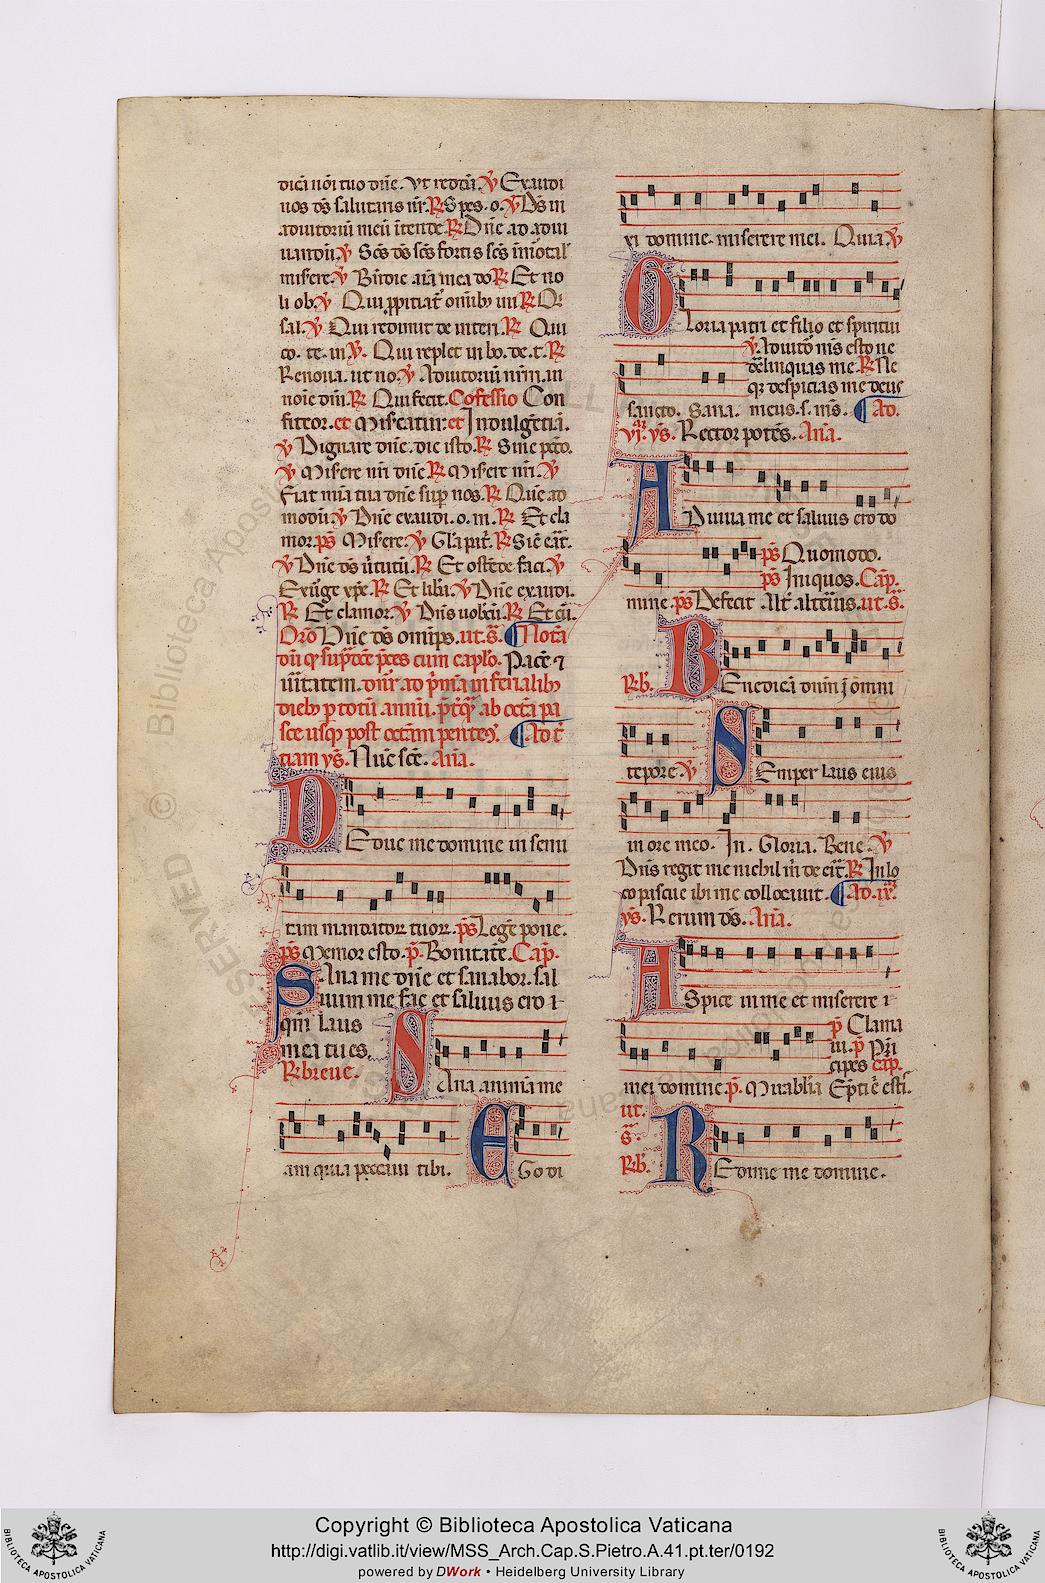 dicā nōi tuo dn̄e. Ut reddā. ℣ Exaudi
nos dš salutaris nr̄. ℟ Spes. o. ℣ Dš in
adiutoriū meū ītende. ℟ Dn̄e ad adiu
uandū. ℣ Scš dš scš fortis scš īmortal'
misere. ℣ Bn̄dic aīa mea do ℟ Et no
li ob. ℣ Qui ꝓpitiat' omīb'
sal. ℣ Qui redimit de interi. ℟ Qui
co. te. in ℣. Qui replet in bo. de. t. ℟
Renoua. ut no. ℣ Adiutoriū nr̄m. in
noīe dn̄i. ℟ Qui fecit. Cōfessio Con
fiteor. et Miseatur. et Indulgētiā.
℣ Dignare dn̄e. die isto. ℟ Sine pctō.
℣ Misere nr̄i dn̄e ℟ Misere nr̄i. ℣
Fiat mīa tua dn̄e sup nos. ℟ Quē ad
modū. ℣ Dn̄e exaudi. o. m. ℟ Et cla
mor. pš Misere. ℣ Glā pr̄i. ℟ Sic̄ erāt.
℣ Dn̄e dš ūtutū. ℟ Et ostēde faci. ℣
Exurge xp̄e. ℟ Et libā. ℣ Dn̄e exaudi.
℟ Et clamor. ℣ Dn̄s uobcū. ℟ Et cū.
Orō Dn̄e dš omīps. ut. s̄. Notā
dū ꝙ sup̄dc̄e p̄ces cum caplō. Pacē ⁊
ūitatem. dn̄r ad p̄mā in ferialib'
dieb' p totū annū. ab octā pa
sce usqꝫ post octām pentec̄. Ad t̄
tiam yš. Nūc scē. Aña.
Educ me domine in semi
tam mandator tuor. pš Legē pone.
pš Memor esto. p̄. Bonitatē. Cap̄.
Sana me dn̄e et sanabor. sal
uum me fac et saluus ero ⁊
qm̄ laus
mea tu es.
R. breue.
Sana animā me
am quia peccaui tibi.
Ego di
xi domine. miserere mei. Quia ℣
Gloria patri et filio et spiritui
℣. Adiutō m̄s esto ne
derelinquas me. ℟ Ne
qꝫ despicias me deus
sancto. Sana. meus. s. m̄s. Ad.
vj. yš. Rector potēs. Aña.
Adiuua me et saluus ero do
pš Quomodo.
pš Iniquos. Cap̄.
mine. pš Defecit Alt̄ alteriūs. ut. s̄.
R. b. Benedicā dnm̄ ī omni
tepore ℣ Semper laus eius
in ore meo. In. Gloria. Bene. ℣
Dn̄s regit me nichil m̄ de erit. ℟ In lo
co pascue ibi me collocauit. Ad. ix.
yš. Rerum dš. Aña.
Aspice in me et miserere ⁊
p̄ Clama
ui. p̄ Pri
cipes cap̄.
mei domine p̄. Mirabliā
ut.
s̄.
R. b. Redime me domine.
Copyright © Biblioteca Apostolica Vaticana
http://digi.vatlib.it/view/MSS_Arch.Cap.S.Pietro.A.41.pt.ter/0192
powered by DWork • Heidelberg University Library
BIBLIOTECA APOSTOLICA VATICANA
BIBLIOTECA APOSTOLICA VATICANA